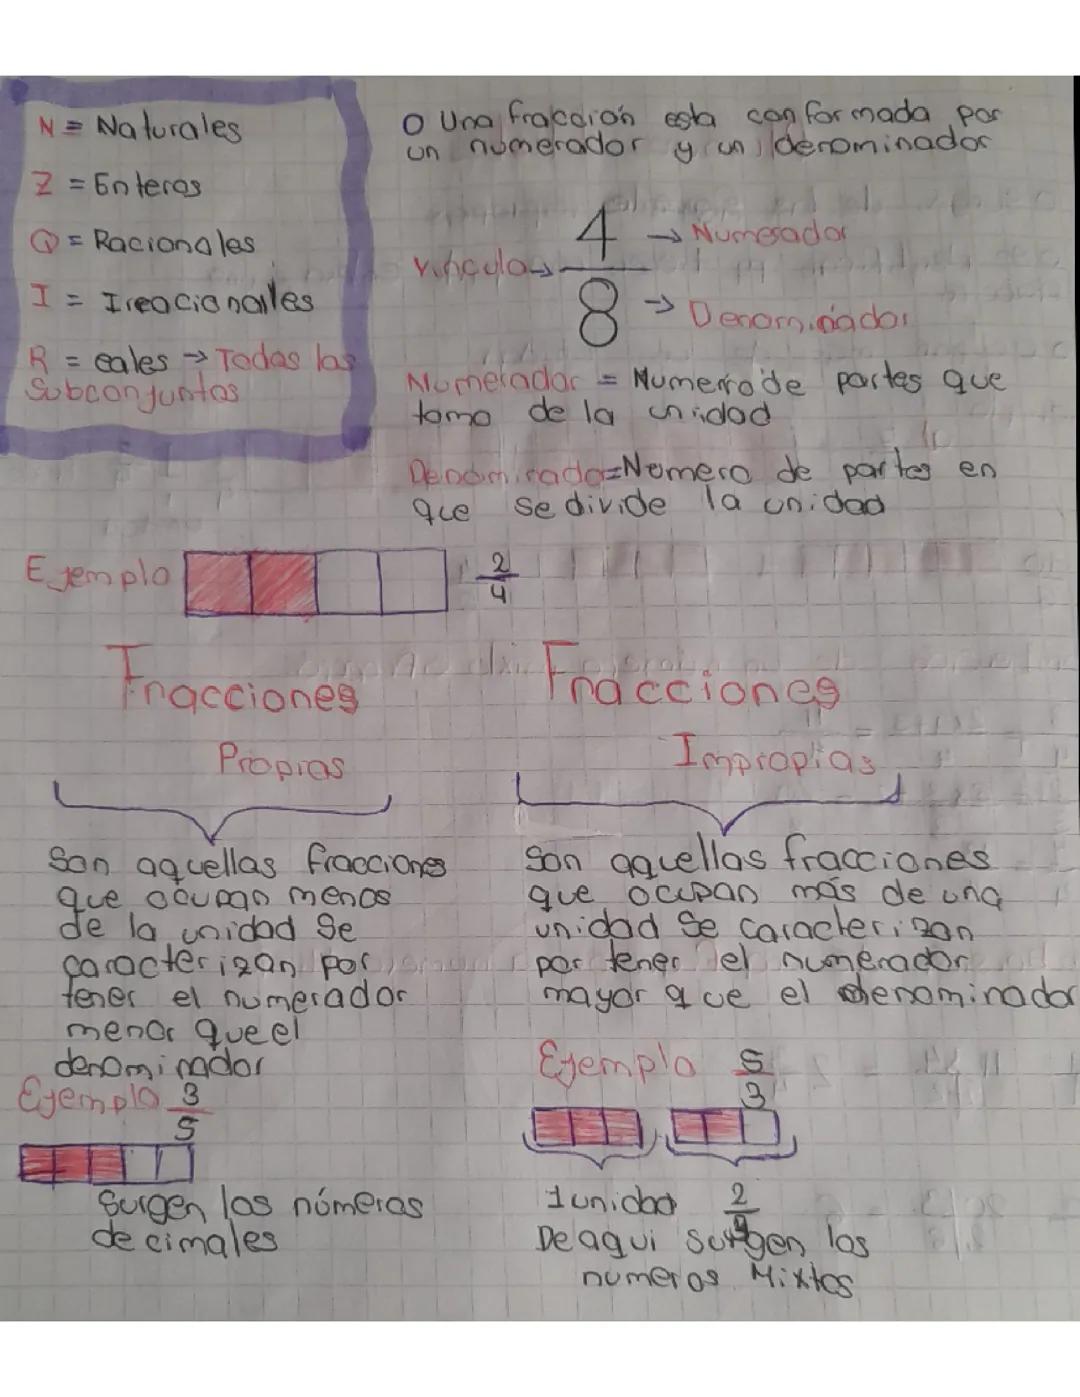 N = Naturales
Z = Enteros
Q = Racionales
I = Ireacionales
R = eales → Todas las
Subconjuntos
O Una fracción esta conformada por
un numerador y un denominador
4 → Numerador
Vinculo →
8 → Denominador
Numerador = Numero de partes que
tomo de la unidad
Denominador = Nomero de partes en
que se divide la unidad
Ejemplo 2/4
Fracciones
Propias
Son aquellas fracciones
que ocupan menos
de la unidad Se
caracterizan por
tener el numerador
menor que el
denominador
Ejemplo 3/5
Surgen los números
decimales
Fracciones
Impropias
Son aquellas fracciones
que ocupan más de una
unidad Se caracterizan
por tener el numerador
mayor que el denominador
Ejemplo 5/3
1 unidad 2
De aqui surgen los
numeros Mixtos